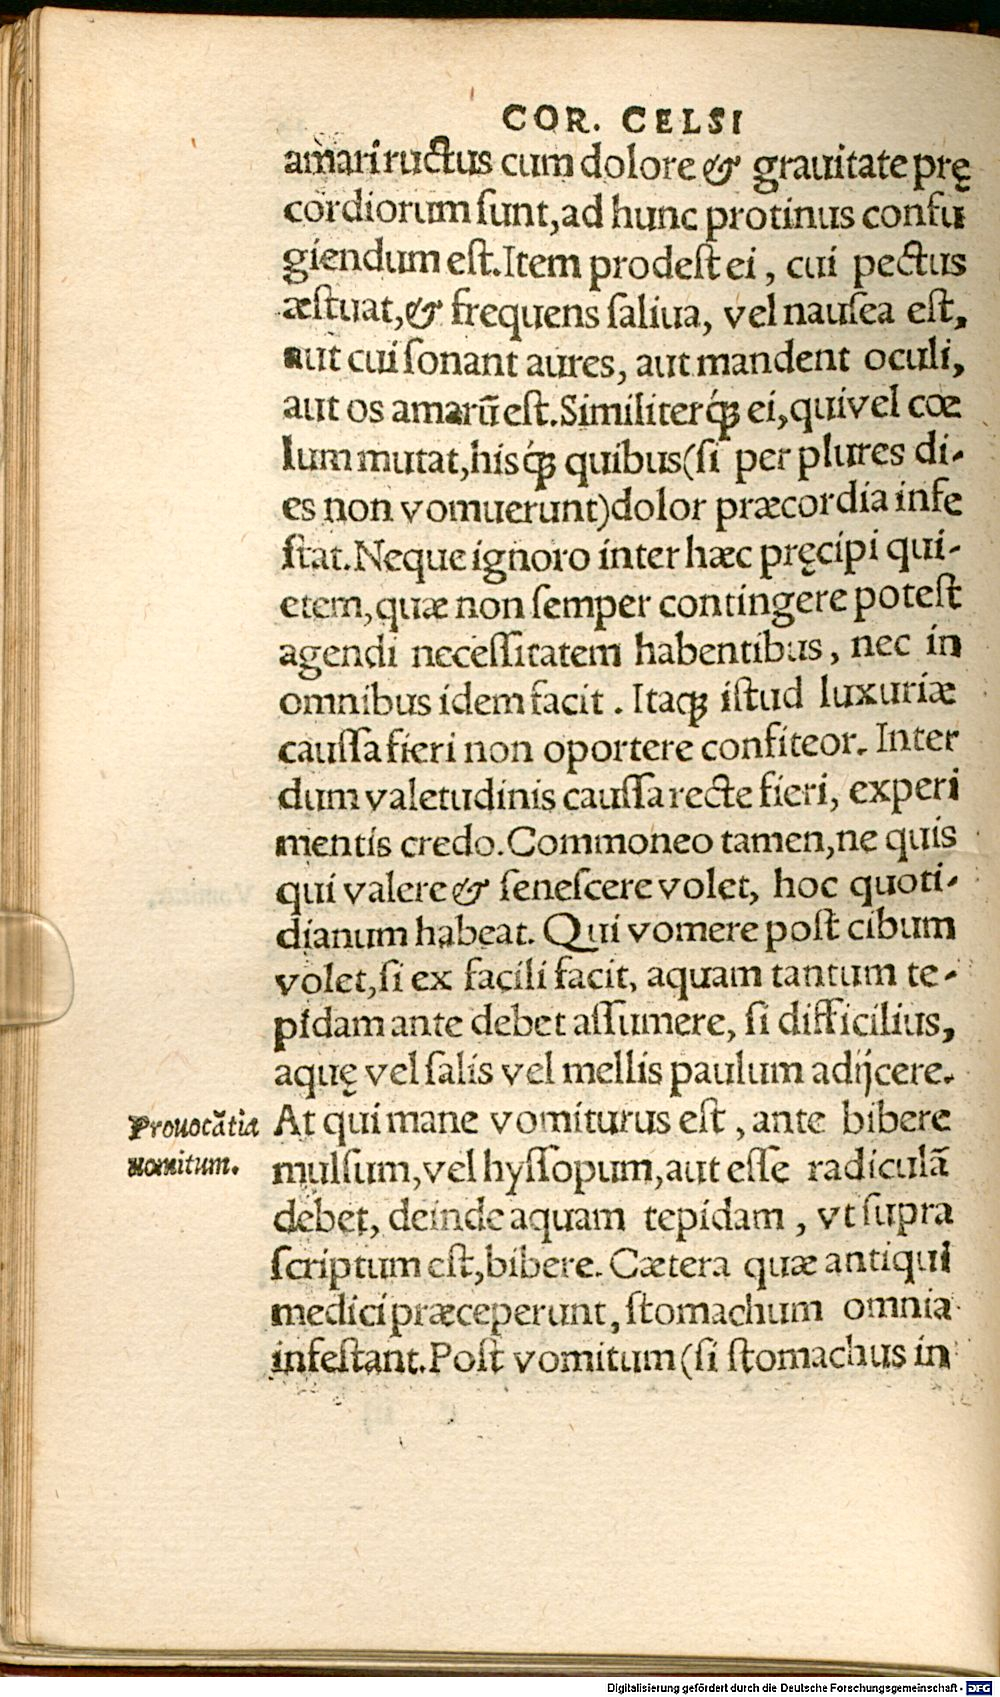 COR. CELSI
amari ructus cum dolore & grauitate prę
cordiorum sunt, ad hunc protinus confu
giendum est. Item prodest ei, cui pectus
æstuat, & frequens saliua, vel nausea est,
aut cui sonant aures, aut mandent oculi,
aut os amarũ est. Similiterq́ꝫ ei, qui vel cœ
lum mutat, hisq́ꝫ quibus (si per plures di-
es non vomuerunt) dolor præcordia infe
stat. Neque ignoro inter hæc pręcipi qui-
etem, quæ non semper contingere potest
agendi necessitatem habentibus, nec in
omnibus idem facit. Itaqꝫ istud luxuriæ
caussa fieri non oportere confiteor. Inter
dum valetudinis caussa recte fieri, experi
mentis credo. Commoneo tamen, ne quis
qui valere & senescere volet, hoc quoti-
dianum habeat. Qui vomere post cibum
volet, si ex facili facit, aquam tantum te-
pidam ante debet assumere, si difficilius,
aquę vel salis vel mellis paulum adijcere.
Prouocãtia
uomitum.
At qui mane vomiturus est, ante bibere
mulsum, vel hyssopum, aut esse radiculã
debet, deinde aquam tepidam, vt supra
scriptum est, bibere. Cætera quæ antiqui
medici præceperunt, stomachum omnia
infestant. Post vomitum (si stomachus in
Digitalisierung gefördert durch die Deutsche Forschungsgemeinschaft - DFG